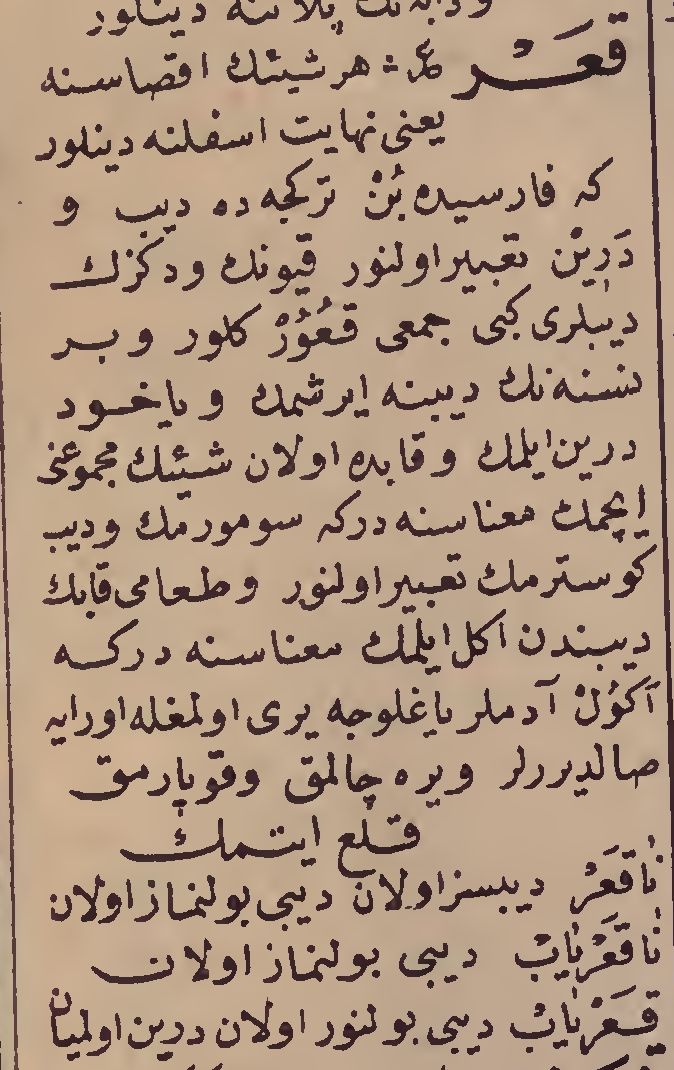 قَعَرْ هر شيئك اقصاسنه
يعنى نهايت اسفلنه دينلور
كه فارسيده بُنْ تركجه ده ديب و
دَرِيْن تعبير اولنور قيونك ودكزك
ديبلرى كبى جمعى قُعُوْرْ كلور و بر
نسنه نك ديبنه ايرشمك و ياخود
درين ايلمك و قابده اولان شيئك مجموعنى
ايچمك معناسنه دركه سومورمك وديب
كوسترمك تعبير اولنور و طعامى قابك
ديبندن اكل ايلمك معناسنه دركه
اَكُوْلْ آدملر ياغلوجه يرى اولمغله اورايه
صالديررلر ويره چالمق وقوپارمق
قلع ايتمك
نٰاقَعَرْ ديبسز اولان ديبى بولنماز اولان
نٰاقَعَرْيٰابْ ديبى بولنماز اولان
قَعَرْيٰابْ ديبى بولنور اولان درين اولميان